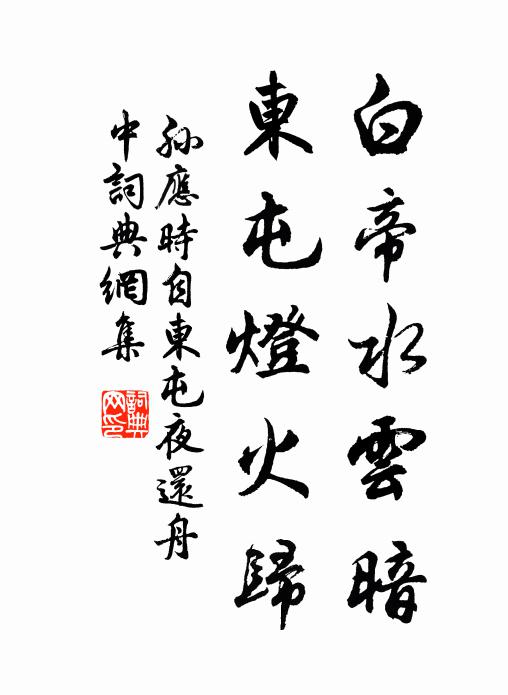 白帝水雲暗
東屯燈火歸
孫應時自東屯夜還舟
中詞典網集
詞典网印